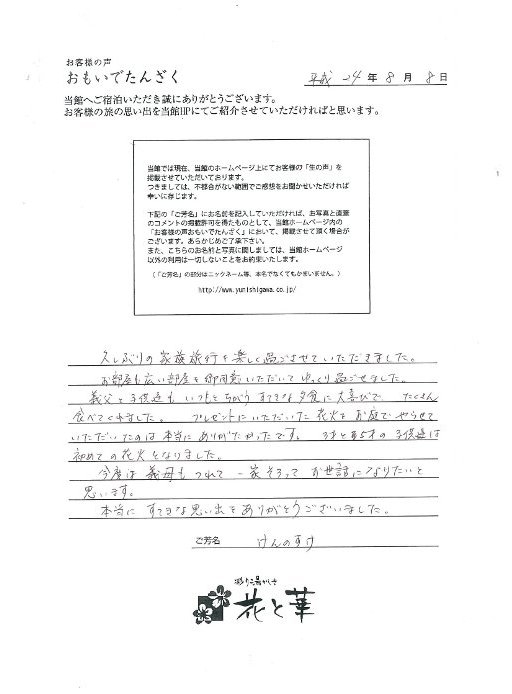 お客様の声
おもいでたんざく
平成 24 年 8 月 8 日
当館へご宿泊いただき誠にありがとうございます。
お客様の旅の思い出を当館HPにてご紹介させていただければと思います。
当館では現在、当館のホームページ上にてお客様の「生の声」を
掲載させていただいております。
つきましては、不都合がない範囲でご感想をお聞かせいただければ
幸いに存じます。
下記の「ご芳名」にお名前を記入していただければ、お写真と直筆
のコメントの掲載許可を得たものとして、当館ホームページ内の
「お客様の声おもいでたんざく」において、掲載させて頂く場合が
ございます。あらかじめご了承下さい。
また、こちらのお名前と写真に関しましては、当館ホームページ
以外の利用は一切しないことをお約束いたします。
(「ご芳名」の部分はニックネーム等、本名でなくてもかまいません。)
http://www.yunishigawa.co.jp/
久しぶりの家族旅行を楽しく過ごさせていただきました。
お部屋も広い部屋を御用意いただいてゆっくり過ごせました。
義父と子供達もいつもとちがうすてきな夕食に大喜びで、たくさん
食べてくれました。プレゼントにいただいた花火をお庭でやらせて
いただいたのは本当にありがたかったです。3才と5才の子供達は
初めての花火となりました。
今度は義母もつれて一家そろってお世話になりたいと
思います。
本当にすてきな思い出をありがとうございました。
ご芳名 けんのすけ
花と華